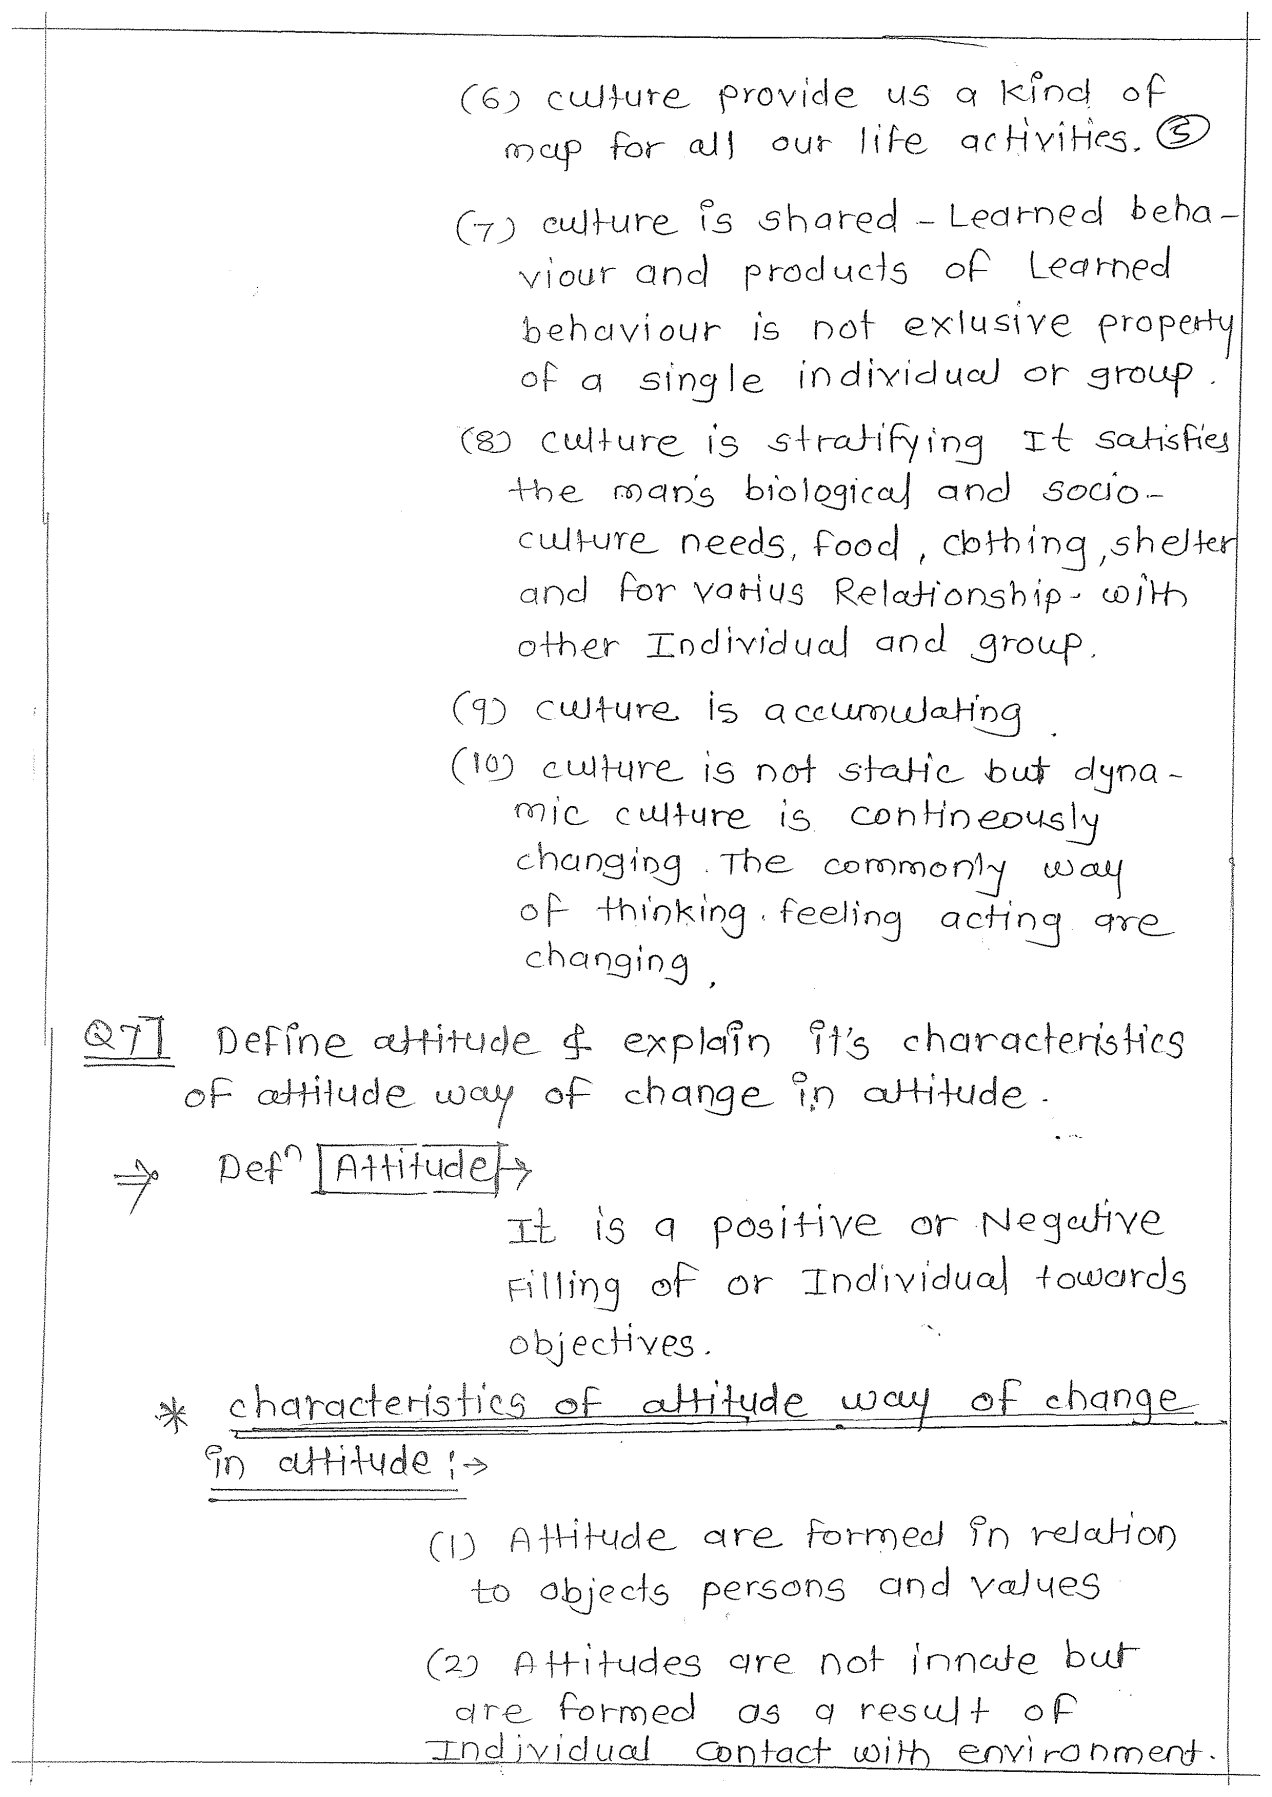 (6) culture provide us a kind of
map for all our life activities. (5)
(7) culture is shared - Learned beha-
viour and products of Learned
behaviour is not exlusive property
of a single individual or group.
(8) culture is stratifying It satisfies
the man's biological and socio-
culture needs, food, clothing, shelter
and for varius Relationship- with
other Individual and group.
(9) culture is accumulating.
(10) culture is not static but dyna-
mic culture is contineously
changing. The commonly way
of thinking. feeling acting are
changing.
Q7] Define attitude & explain it's characteristics
of attitude way of change in attitude.
⇒ Defⁿ [Attitude]→
It is a positive or Negative
Filling of or Individual towards
objectives.
* characteristics of attitude way of change
in attitude :→
(1) Attitude are formed in relation
to objects persons and values
(2) Attitudes are not innate but
are formed as a result of
Individual contact with environment.